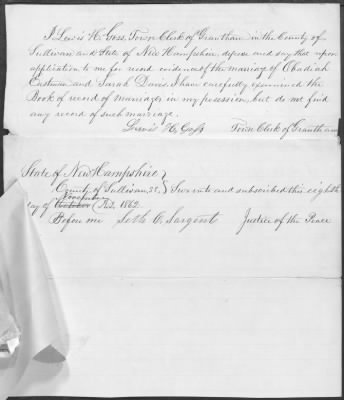 I Lewis H. Goss, Town Clerk of Grantham in the County of
Sullivan and State of New Hampshire, depose and say that upon
application to me for record evidence of the marriage of Obadiah
Eastman and Sarah Davis. I have carefully examined the
Book of record of marriages in my possession, but do not find
any record of such marriage.
Lewis H. Goss Town Clerk of Grantham
State of New Hampshire }
County of Sullivan, SS, } Sworn to and subscribed this eighth
November
day of October A.D. 1862
Before me Seth C. Sargent Justice of the Peace